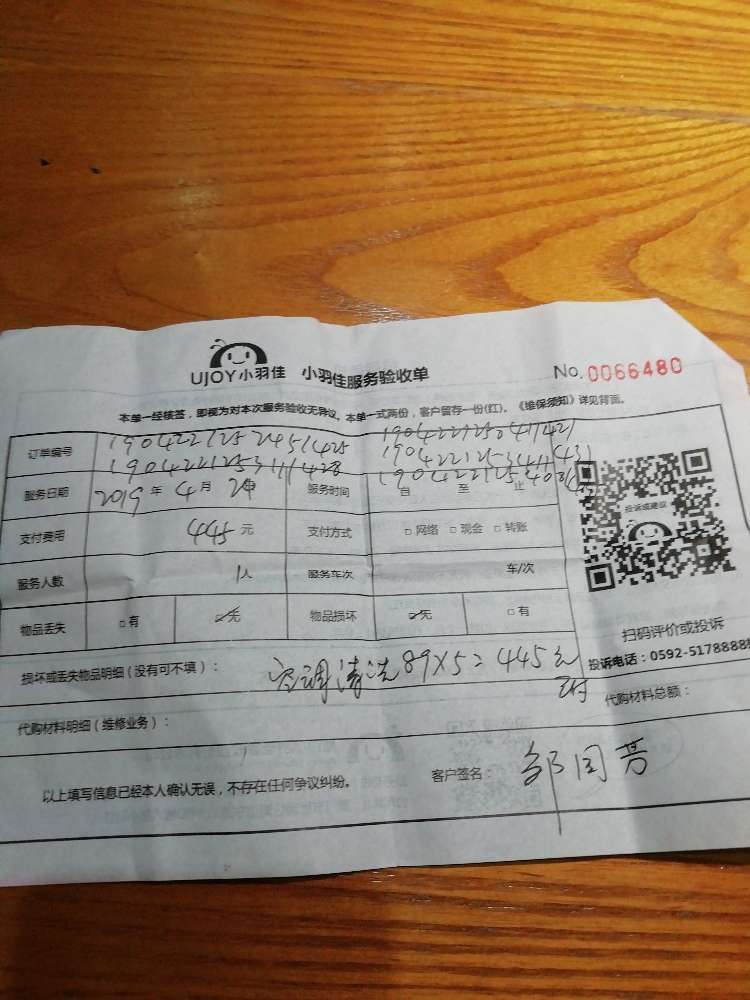 UJOY小羽佳 小羽佳服务验收单 No.0066480
本单一经核签，即视为对本次服务验收无异议。本单一式两份，客户留存一份(红)。《维保须知》详见背面。
订单编号
服务日期 2019年4月 服务时间 自 至 止
投诉或建议
支付费用 445元 支付方式 □网络 □现金 □转账
服务人数 1人 服务车次 车/次
物品丢失 □有 ☑无 物品损坏 ☑无 □有
扫码评价或投诉
损坏或丢失物品明细（没有可不填）： 空调清洗89X5=445元
投诉电话：0592-5178888
代购材料总额：
代购材料明细（维修业务）：
以上填写信息已经本人确认无误，不存在任何争议纠纷。 客户签名：